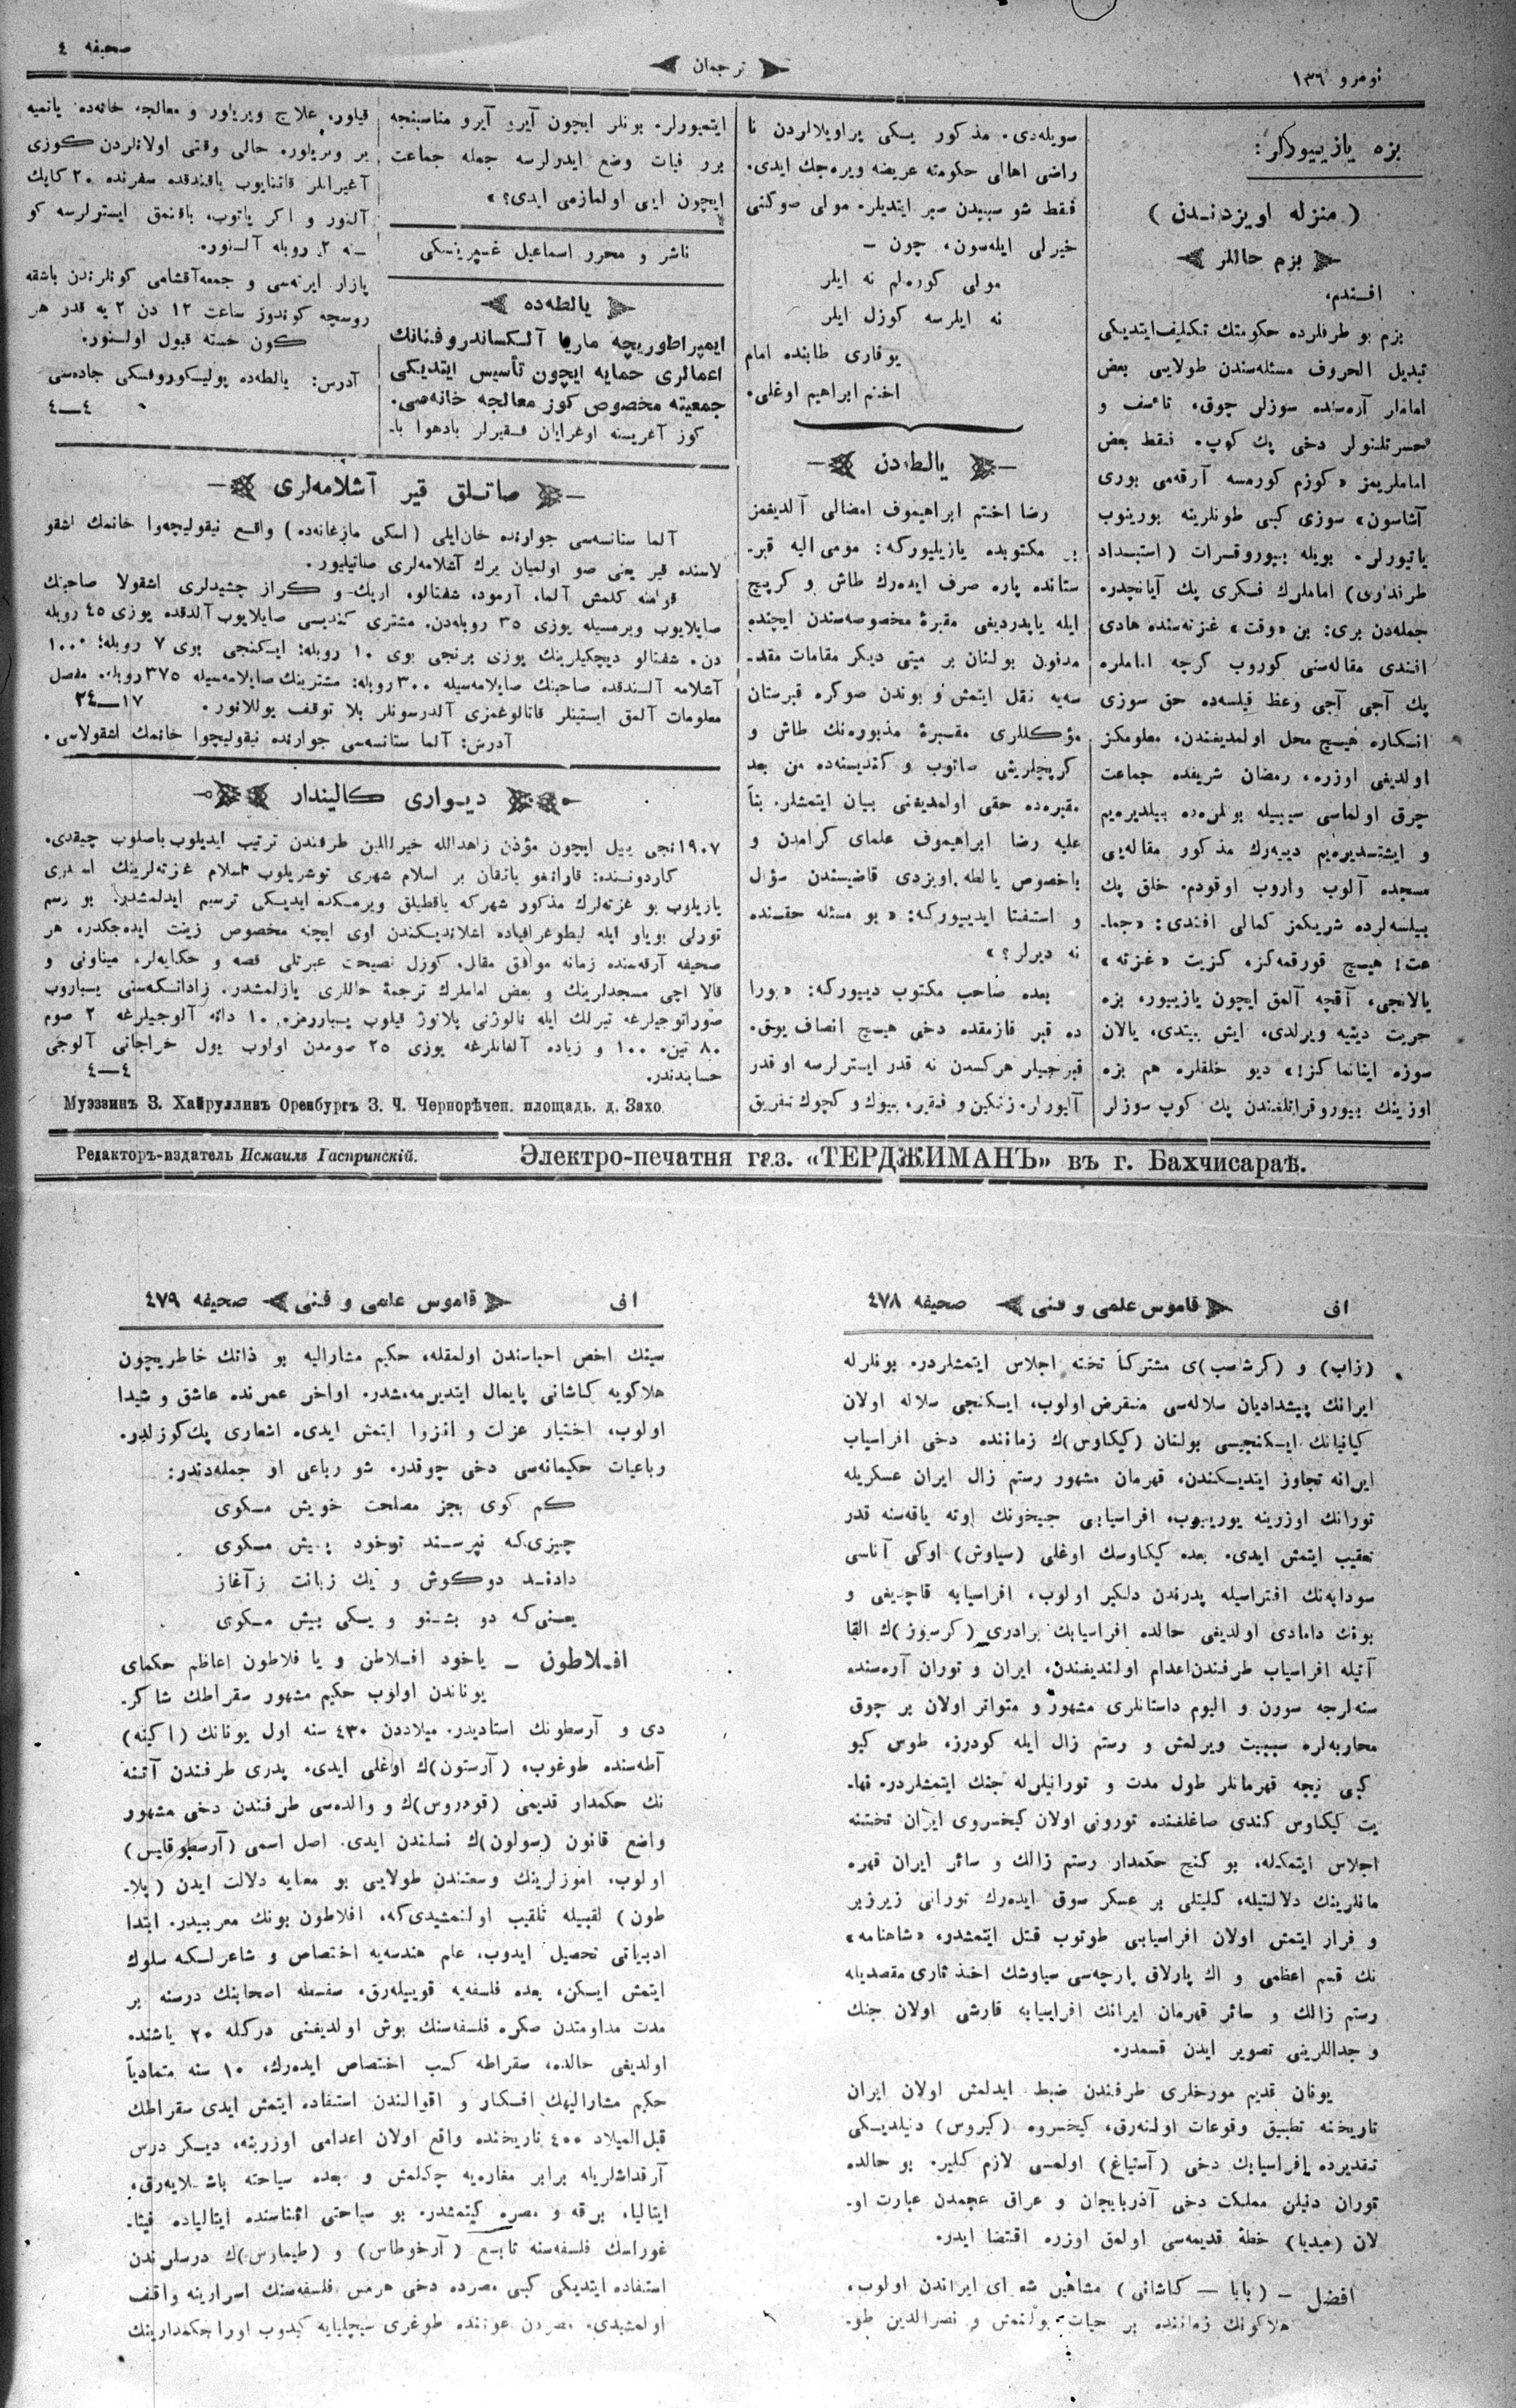 نومرو ١٣٦
ترجمان
صحیفه ٤
بزه یازییورلر:
(منزله اویزدنـدن)
بزم حاللر
افـندم،
بزم بو طرفلرده حکومتك تکلیف‌ایتدیکی
تبدیل الحروف مسئله‌سندن طولایی بعض
اماملر آره‌سنده سوزلر چوق، تاءسف و
تحسرتلنولر دخی پك کوپ. فـقط بعض
اماملریمز «کوزم کورمسه آرقه‌می بوری
آشاسون» سوزی کبی طونلرینه بورینوب
یاتیورلر. بویله بیوروقـرات (استبـداد
طرفداری) اماملرك فـکری پك آیانچدر.
جمله‌دن بری: بن «وقت» غزته‌سنده هادی
افندی مقاله‌سنی کوروب کرچه اماملره
پك آجی آجی وعظ قیلسه‌ده حق سوزی
انـکاره هیـچ محل اولمدیغندن، معلومکز
اولدیغی اوزره، رمضان شریفده جماعت
چرق اولماسی سیبیله بونلره‌ده بیلدیره‌یم
و ایشتـدیره‌یم دییه‌رك مذکور مقاله‌یی
مسجده آلوب واروب اوقودم. خلق پك
بیلسه‌لرده شریکمز کمالی افندی: «جما-
عت! هیـچ قورقمه‌کز، کزیت «غزته»
یالانجی، آقچه آلمق ایچون یازییور، بزه
حریت دیتیه ویرلدی، ایش بیتدی، یالان
سوزه اینانماکز!» دیو خلقلره هم بزه
اوزینك بیوروقراتلغندن پك کوپ سوزلر
سویله‌دی. مذکور یسکی پراویلالردن نا
راضی اهالی حکومته عریضه ویره‌جك ایدی،
فـقط شو سببدن صبر ایتدیلر. مولی صوکنی
خیرلی ایله‌سون، چون ـ
مولی کوره‌لم نه ایلر
نه ایلرسه کوزل ایلر
یوقاری طابنده امام
اختم ابراهیم اوغلی.
یالطه‌دن
رضا اختم ابراهیموف امضالی آلدیغمز
بر مکتوبده یازیلیورکه: مومی الیه قبر-
ستانده پاره صرف ایده‌رك طاش و کرپیچ
ایله یاپدردیغی مقبرۀ مخصوصه‌سندن ایچنده
مدفون بولنان بر میتی دیکر مقامات مقد-
سه‌یه نقل ایتمش و بوندن صوکره قبرستان
مؤکللری مقـبرۀ مذبوره‌نك طاش و
کرپچلریـی صاتوب و کندیسنه‌ده من بعد
مقبره‌ده حقی اولمدیغنی بیان ایتمشلر. بناً
علیه رضا ابراهیموف علمای کرامدن و
باخصوص یالطه اویزدی قاضیسندن سؤال
و استفتا ایدییورکه: «بو مسئله حقـنده
نه دیرلر؟»
بعده صاحب مکتوب دییورکه: «بورا
ده قبر قازمقده دخی هیـچ انصاف یوق.
قبرجیلر هرکسدن نه قدر ایسترلرسه اوقدر
آلیورلر. زنکین و فـقیر، بیوك و کچوك تفریق
ایتمیورلر. بونلر ایچون آیرو آیرو مناسبنجه
برر فیات وضع ایدولرسه جمله جماعت
ایچون ایی اولمازمی ایدی؟»
ناشر و محرر اسماعیل غـپرینسکی
یالطه‌ده
ایمپراطوریچه ماریا آلـکساندروفـنانك
اعمالری حمایه ایچون تأسیس ایتدیکی
جمعیته مخصوص کوز معالجه خانه‌سی.
کوز آغریسنه اوغرایان فـقیرلر بادهوا با-
قیلور، علاج ویریلور و معالجه خانه‌ده یانمیه
یر ویریلور. حالی وقتی اولانلردن کوزی
آغیرانلر قاتنایوب باقندقده سفرنده ٢٠ کاپك
آلنور و اکر یاتوب، باقنمق ایسترلرسه کو
نه ٢ روبله آلـنور.
پازار ایرته‌سی و جمعه‌آقشامی کونلرندن باشقه
روسچه کوندوز ساعت ١٢ دن ٢ یه قدر هر
کون خسته قبول اولـنور.
آدرس: یالطه‌ده پولیکوروفسکی جاده‌سی
٤ــ٤
صاتـلق قیر آشلامه‌لری
آلما ستانسه‌سی جوارنده خان‌ایلی (اسکی مازغانه‌ده) واقـع نیقولیچه‌وا خانمك اشقو
لاسنده قیر یعنی صو اولمیان یرك آشلامه‌لری صاتیلیور.
قوامنه کلمش آلما، آرمود، شفتالو، اریك و کراز چشیدلری اشقولا صاحبنك
صایلایوب ویرمسیله یوزی ٣٥ روبله‌دن، مشتری کندیسی صایلایوب آلدقده یوزی ٤٥ روبله
دن. شفتالو دیچکیلرینك یوزی برنجی بوی ١٠ روبله: ایـکنجی بوی ٧ روبله؛ ١٠٠٠
آشلامه آلـندقده صاحبنك صایلامه‌سیله ٣٠٠ روبله: مشترینك صایلامه‌سیله ٣٧٥ روبله. مفصل
معلومات آلمق ایستینلر قاتالوغمزی آلدرسونلر بلا توقف یوللانور. ١٧ــ٢٤
آدرس: آلما ستانسه‌سی جوارنده نیقولیچوا خانمك اشقولاسی.
دیـواری کالیندار
١٩٠٧نجی ییل ایچون مؤذن زاهدالله خیراللین طرفندن ترتیب ایدیلوب باصلوب چیقدی.
کاردوننـده: قارانغو یانغان بر اسلام شهری توشریلوب اسلام غزته‌لرینك اسملری
یازیلوب بو غزته‌لرك مذکور شهرکه یاقطیلق ویرمـکده ایدیـکی ترسیم ایدلمشدیر. بو رسم
تورلی بویاو ایله لیطوغرافیاده اشلاندیـکندن اوی ایچنه مخصوص زینت ایده‌جکدر، هر
صحیفه آرقه‌سنده زمانه موافق مقال، کوزل نصیحت عبرتلی قصه و حکایه‌لر، میناونی و
قالا اچی مسجدلرینك و بعض اماملرك ترجمۀ حاللری یازلمشدر. زادانـکه‌سنی یـباروب
صوراتوجیلرغه تیزلك ایله نالوژنی پلاتوژ قیلوب یـباررمز. ١٠ دانه آلوجیلرغه ٢ صوم
٨٠ تین، ١٠٠ و زیاده آلغانلرغه یوزی ٢٥ صومدن اولوب یول خراجاتی آلوجی
حسابندندر. ٤ــ٤
Муэззинъ З. Хайруллинъ Оренбургъ З. Ч. Чернорѣчен. площадь. д. Захо
Редакторъ-издатель Исмаилъ Гаспринскій.
Электро-печатня газ. «ТЕРДЖИМАНЪ» въ г. Бахчисараѣ.
اف
قاموس علمی و فـنی
صحیفه ٤٧٨
(زاب) و (کرشاسب)ی مشترکاً تخته اجلاس ایتمشلردر. بونلرله
ایرانك پیشدادیان سلاله‌سی منقرض اولوب، ایـکنجی سلاله اولان
کیانیانك ایـکنجیسی بولنان (کیکاوس)ك زماننده دخی افراسیاب
ایرانه تجاوز ایتدیـکندن، قهرمان مشهور رستم زال ایران عسکریله
تورانك اوزرینه یورییوب، افراسیابی جیحونك اوته یاقه‌سنه قدر
تعقیب ایتمش ایدی. بعده کیکاوسك اوغلی (سیاوش) اوکی آناسی
سودابه‌نك افتراسیله پدرندن دلکیر اولوب، افراسیابه قاچدیغی و
بونك دامادی اولدیغی حالده افراسیابك برادری (کرسیوز)ك القا
آتیله افراسیاب طرفندن‌اعدام اولندیغندن، ایران و توران آره‌سنده
سنه‌لرجه سورن و الیوم داستانلری مشهور و متواتر اولان بر چوق
محاربه‌لره سببیت ویرلمش و رستم زال ایله کودرز، طوس کیو
کبی نیجه قهرمانلر طول مدت و تورانیلرله جنك ایتمشلردر. نها-
یت کیکاوس کندی صاغلغنده تورونی اولان کیخسروی ایران تختنه
اجلاس ایتمکله، بو کنج حکمدار رستم زالك و سائر ایران قهره
مانلرینك دلالتیله، کلیتلی بر عسکر سوق ایده‌رك تورانی زیرزبر
و فرار ایتمش اولان افراسیابی طوتوب قتل ایتمشدر، «شاهنامه»
نك قسم اعظمی و اك پارلاق پارچه‌سی سیاوشك اخذ ثاری مقصدیله
رستم زالك و سائر قهرمان ایرانك افراسیابه قارشی اولان جنك
و جداللرینی تصویر ایدن قسمدر.
یونان قدیم مورخلری طرفندن ضبط ایدلمش اولان ایران
تاریخنه تطبیق وقوعات اولنه‌رق، کیخسروه (کیروس) دنیلدیـکی
تقدیرده افراسیابك دخی (آستیاغ) اولمسی لازم کلیر. بو حالده
توران دنیلن مملکت دخی آذربایجان و عراق عجمدن عبارت او-
لان (میدیا) خطۀ قدیمه‌سی اولمق اوزره اقتضا ایدر.
افضل ـ (بابا — کاشانی) مشاهیر شعرای ایراندن اولوب،
هلاکونك زماننده بر حیات بولنمش و نصرالدین طو-
اف
قاموس علمی و فـنی
صحیفه ٤٧٩
سینك اخص احباسندن اولمقله، حکیم مشارالیه بو ذاتك خاطریچون
هلاکویه کاشانی پایمال ایتدیرمه‌مشدر. اواخر عمرنده عاشق و شیدا
اولوب، اختیار عزلت و انزوا ایتمش ایدی. اشعاری پك‌کوزلدر.
رباعیات حکیمانه‌سی دخی چوقدر. شو رباعی او جمله‌دندر:
کم کوی بجز مصلحت خویش مـکوی
چیزی‌که نپرسـند توخود پیش مـکوی
دادنـد دوکوش و یك زبانت زآغاز
یعـنی‌که دو بشـنو و یـکی بیش مـکوی
افـلاطون ـ یاخود افـلاطن و یا فلاطون اعاظم حکمای
یوناندن اولوب حکیم مشهور سقراطك شاکر-
دی و آرسطونك استادیدر. میلاددن ٤٣٠ سنه اول یونانك (اکینه)
آطه‌سنده طوغوب، (آرستون)ك اوغلی ایدی. پدری طرفندن آتنه
نك حکمدار قدیمی (قودروس)ك و والده‌سی طرفندن دخی مشهور
واضع قانون (سولون)ك نسلندن ایدی. اصل اسمی (آرسطوقلیس)
اولوب، اموزلرینك وسعتندن طولایی بو معنایه دلالت ایدن (پلا-
طون) لقبیله تلقیب اولنمشیدی‌که، افلاطون بونك معربیدر. ابتدا
ادبیاتی تحصیل ایدوب، علم هندسه‌یه اختصاص و شاعرلـکه سلوك
ایتمش ایـکن، بعده فلسفه‌یه قوییله‌رق، سفسطه اصحابنك درسنه بر
مدت مداومتدن صکره فلسفه‌سنك بوش اولدیغنی درکله ٢٠ یاشنده
اولدیغی حالده، سقراطه کسب اختصاص ایده‌رك، ١٠ سنه متمادیاً
حکیم مشارالیهك افـکار و اقوالندن استفاده ایتمش ایدی سقراطك
قبل‌المیلاد ٤٠٠ تاریخنده واقع اولان اعدامی اوزرینه، دیـکر درس
آرقداشلریله برابر مغاره‌یه چکلمش و بعده سیاحته باشـلایه‌رق،
ایتالیا، برقه و مصره کیتمشدر. بو سیاحتی اثناسنده ایتالیاده فیثا-
غوراسك فلسفه‌سنه تابـع (آرخوطاس) و (طیماوس)ك درسلرندن
استفاده ایتدیکی کبی مصرده دخی هرمس فلسفه‌سنك اسرارینه واقف
اولمشیدی. مصردن عودتنده طوغری سیچیلیایه کیدوب اورا حکمدارینك